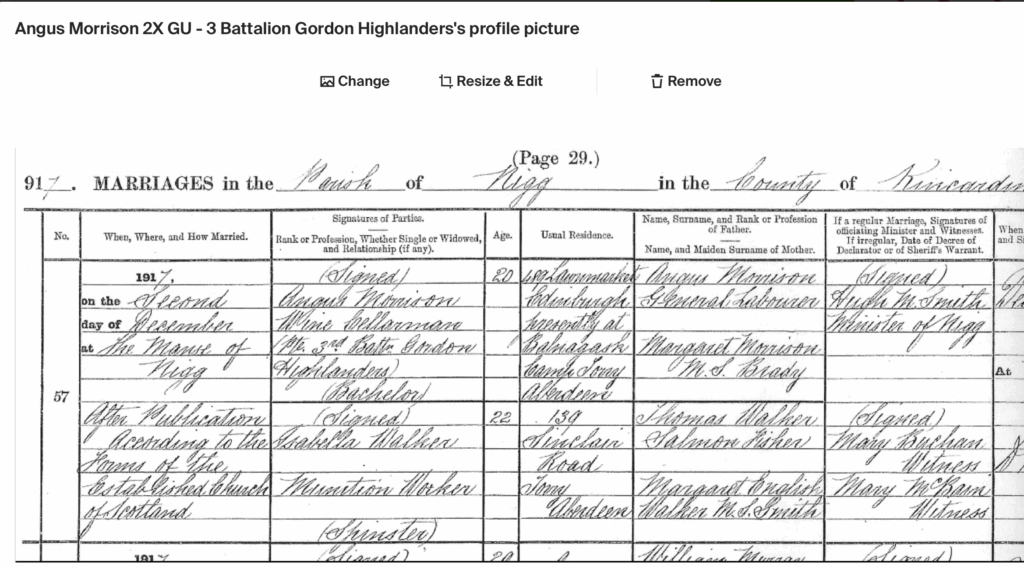 Angus Morrison 2X GU - 3 Battalion Gordon Highlanders's profile picture
Change
Resize & Edit
Remove
(Page 29.)
917. MARRIAGES in the Parish of Nigg in the County of Kincardin
No.
When, Where, and How Married.
Signatures of Parties.
Rank or Profession, Whether Single or Widowed,
and Relationship (if any).
Age.
Usual Residence.
Name, Surname, and Rank or Profession
of Father.
Name, and Maiden Surname of Mother.
If a regular Marriage, Signatures of
officiating Minister and Witnesses.
If irregular, Date of Decree of
Declarator or of Sheriff's Warrant.
When
and
57
1917,
on the Second
day of December
at The Manse of
Nigg
After Publication
According to the
Forms of the
Established Church
of Scotland
(Signed)
Angus Morrison
Wine Cellarman
(Pte. 3rd Battn Gordon
Highlanders)
(Bachelor)
(Signed)
Isabella Walker
Munition Worker
(Spinster)
20
22
Lawnmarket
Edinburgh
presently at
Balnagask
Camp Torry
Aberdeen
139
Sinclair
Road
Torry
Aberdeen
Angus Morrison
General Labourer
Margaret Morrison
M.S. Brady
Thomas Walker
Salmon Fisher
Margaret English
Walker M.S. Smith
(Signed)
Hugh M. Smith
Minister of Nigg
(Signed)
Mary Buchan
Witness
Mary McBain
Witness
At
1917
(Signed)
20
William Murray
(Signed)